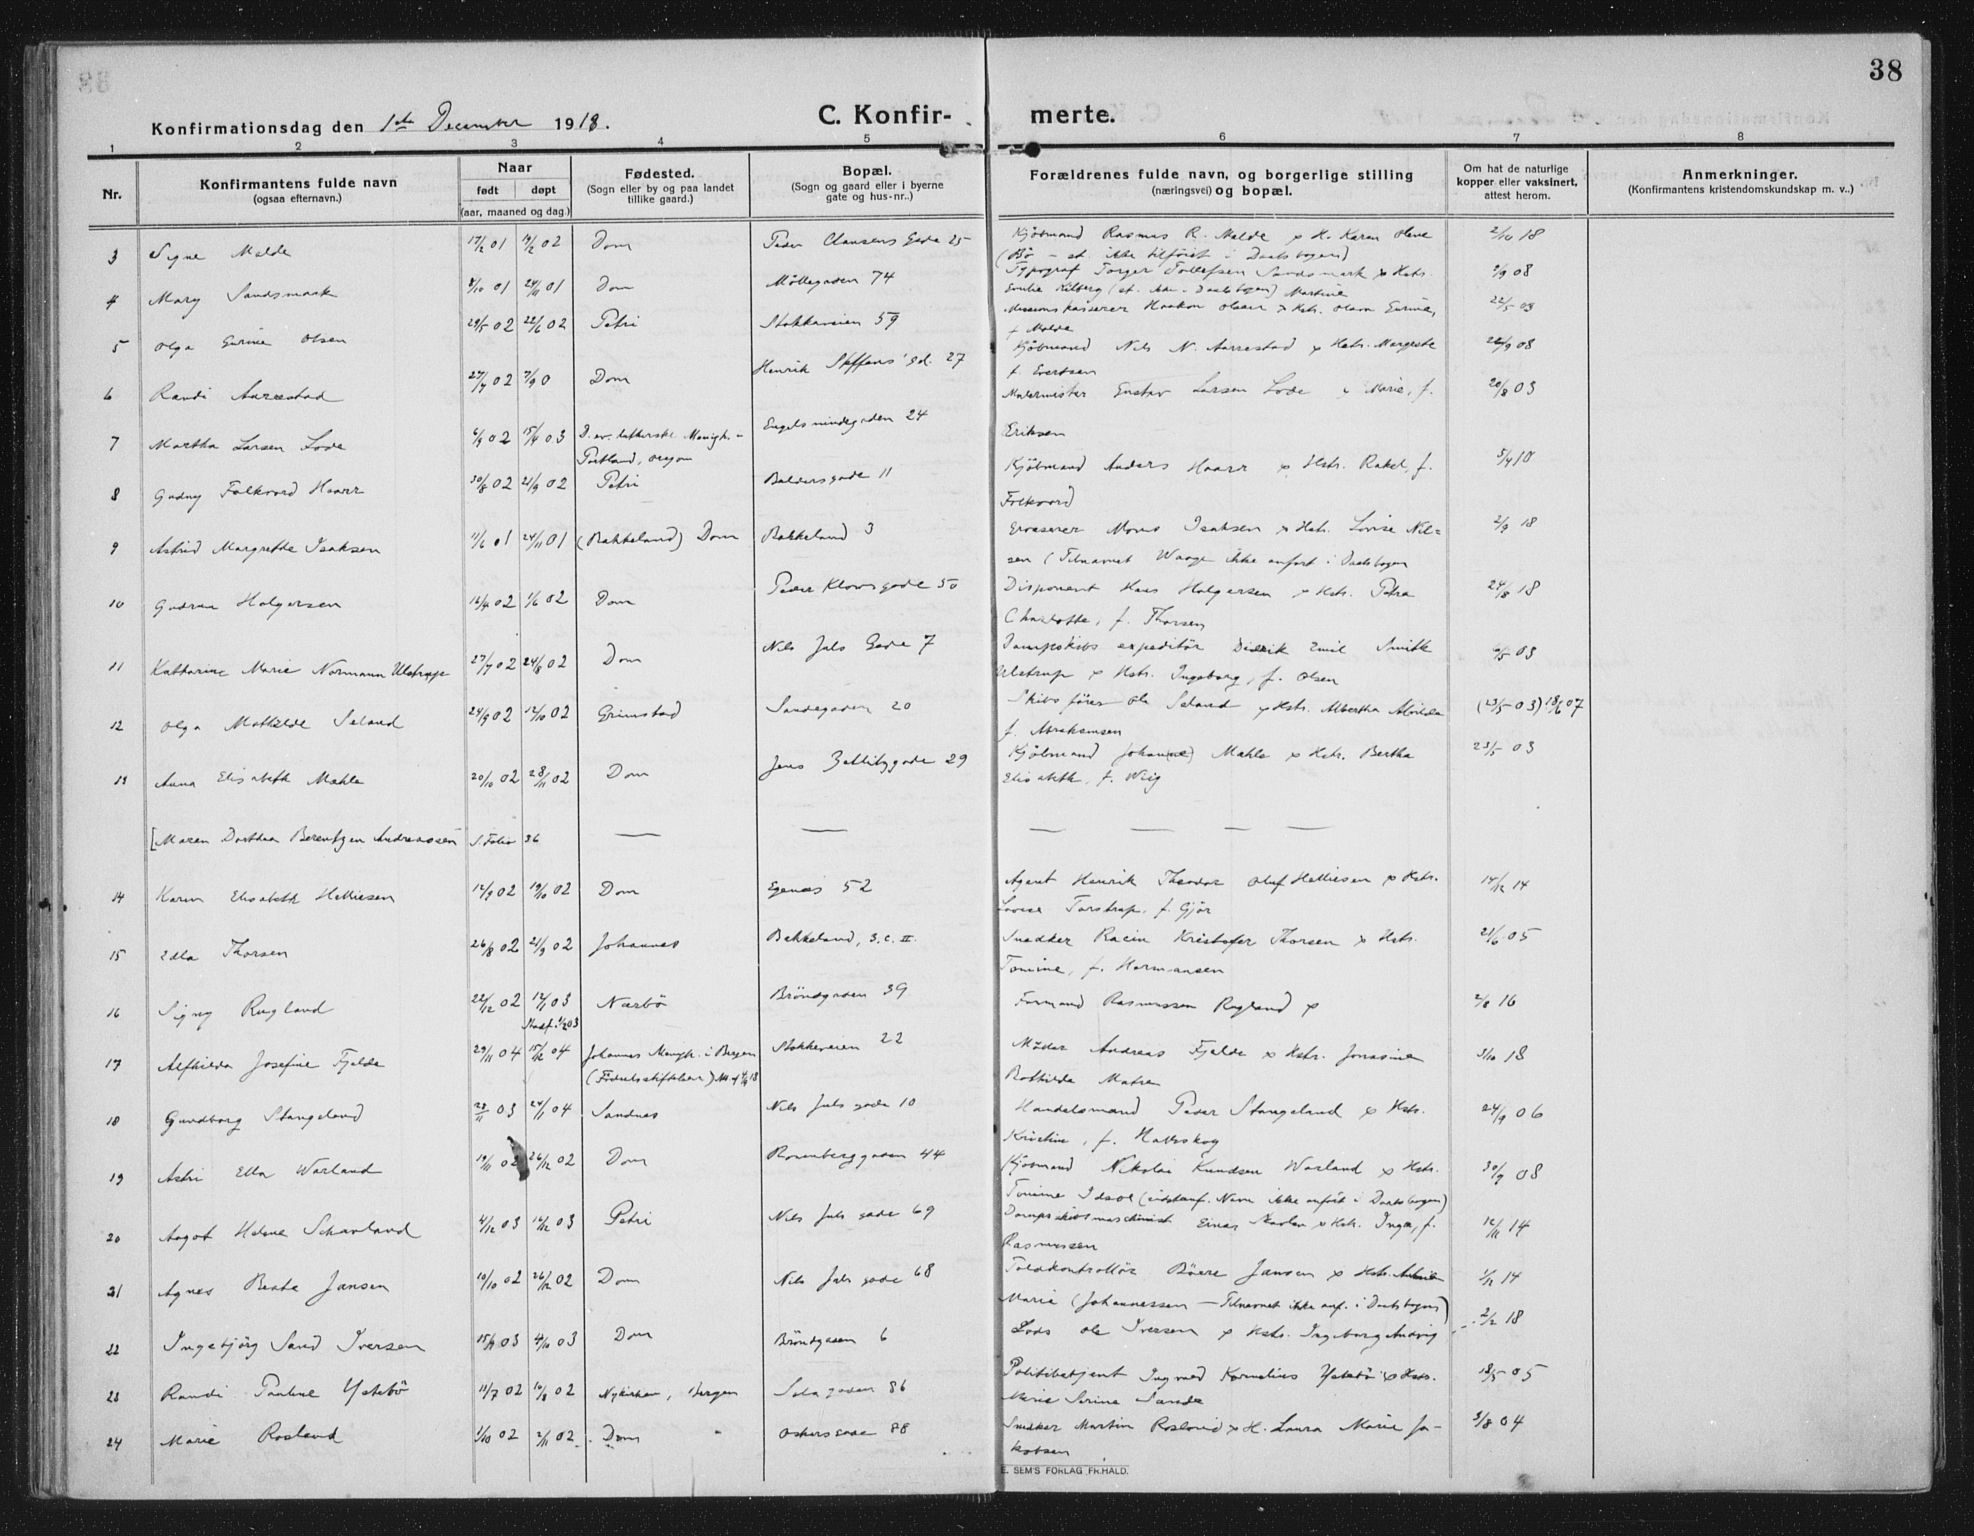 38
Konfirmationsdag den 1ste December 1918.
C. Konfir- merte.
1 2 3 4 5 6 7 8
Nr.
Konfirmantens fulde navn
(ogsaa efternavn.)
Naar
født døpt
(aar, maaned og dag)
Fødested.
(Sogn eller by og paa landet
tillike gaard.)
Bopæl.
(Sogn og gaard eller i byerne
gate og hus-nr..)
Forældrenes fulde navn, og borgerlige stilling
(næringsvei) og bopæl.
Om hat de naturlige
kopper eller vaksinert,
attest herom.
Anmerkninger.
(Konfirmantens kristendomskundskap m. v..)
3 Signe Malde 17/12 01 14/2 02 Dom Peder Clausens Gade 25 Kjöbmand Rasmus R. Malde x H. Karen Olene 2/10 18
(Bø - st. ikke tilföiet i Daabsbogen)
4 Mary Sandsmark 8/10 01 24/11 01 Dom Möllegaden 74 Typograf Torger Tollefsen Sandsmark x Hstr. 9/9 08
Emilie Kilberg
5 Olga Gurine Olsen 29/5 02 22/6 02 Petri Stokkaveien 59 Haakon Olsen x Hstr. Gurine, 22/5 03
f. Malde
6 Randi Aarrestad 27/7 02 7/9 0 Dom Henrik Steffens' gd. 27 Kjöbmand Nils N. Aarrestad x Hstr. Margrete 22/9 08
f. Evertsen
7 Martha Larsen Lode 6/9 02 15/4 03 D. ev. lutherske Menigh. - Engelsmindegaden 24 Malermester Gustav Larsen Lode x Marie, f. 20/8 03
Portland, Oregon Eriksen
8 Gudny Folkvord Haarr 30/8 02 21/9 02 Petri Baldersgade 11 Kjöbmand Anders Haarr x Hstr. Rakel, f. 5/4 10
Folkvord
9 Astrid Margrethe Isaksen 11/6 01 24/11 01 (Bakkeland) Dom Bakkeland 3 Isaksen x Hstr. Lovise Nil= 2/9 18
sen (Tilnavnet Waage ikke anfört i Daabsbogen
10 Gudrun Holgersen 16/4 02 1/6 02 Dom Peder Klowsgade 50 Disponent Hans Holgersen x Hstr. Petra 24/8 18
Charlotte, f. Thorsen
11 Katharine Marie Normann Ulstrup 27/7 02 24/8 02 Dom Nils Juls Gade 7 Dampskibsexpeditör Didrik Emil Smith 6/5 03
Ulstrup x Hstr. Ingeborg, f. Olsen
12 Olga Mathilde Seland 24/9 02 12/10 02 Grimstad Sandegaden 20 Skibsförer Ole Seland x Hstr. Albertha Alvilda (23/5 03) 18/6 07
f. Abrahamsen
13 Anna Elisabeth Mæhle 20/10 02 28/11 02 Dom Jens Zetlitzgade 29 Kjöbmand Johan(ne) Mæhle x Hstr. Bertha 23/5 03
Elisabeth, f. Wiig
[Maren Dorthea Berentzen Andreassen S. Folio 36 — — — — — —
14 Karen Elisabeth Helliesen 12/9 02 19/10 02 Dom Egenæs 52 Agent Henrik Theodor Oluf Helliesen x Hstr. 14/12 14
Lovise Torstrup, f. Gjör
15 Edla Thorsen 26/8 02 21/9 02 Johannes Bakkeland, 3. c. II. Snedker Racin Kristofer Thorsen x Hstr. 21/6 05
Tomine, f. Hermansen
16 Signy Rugland 22/12 02 12/1 03 Nærbö Bröndgaden 39 Formand Rasmussen Rugland x 2/8 16
Stadf. 1/2 03
17 Alfhilda Josefine Fjelde 29/11 04 15/12 04 Johannes Menigh. i Bergen Stokkaveien 22 Maler Andreas Fjelde x Hstr. Jonasine 3/10 18
(Födselsstiftelsen) Bothilde Matre
18 Gundborg Stangeland 28/11 03 24/1 04 Sandnes Nils Juls gade 10 Handelsmand Peder Stangeland x Hstr. 24/9 06
Kristine, f. Hatteskog
19 Astri Ella Warland 19/11 02 26/12 02 Dom Rosenberggaden 44 Kjöbmand Nikolai Knudsen Warland x Hstr. 30/9 08
Tomine Idsöe (sidstanf. Navn ikke anfört i Daabsbogen)
20 Aagot Helene Scharland 4/12 03 Petri Nils Juls gade 69 Dampskibsmaschinist Einar x Hstr. Inga, f. 12/11 14
Rasmussen
21 Agnes Beate Jansen 10/10 02 26/12 02 Dom Nils Juls gade 68 Toldkontrollör Böere Jansen x Hstr. 1/12 14
Marie (Johannessen — Tilnavnet ikke anf. i Daabsbogen)
22 Ingebjörg Sand Iversen 03 4/10 03 Dom Bröndgaden 6 Lods Ole Iversen x Hstr. Ingeborg 2/12 18
23 Randi Pauline Ystebö 11/7 02 10/8 02 Nykirken, Bergen Solagaden 86 Politibetjent Ingvard Kornelius Ystebö x Hstr. 18/5 05
Marie Serine Sande
24 Marie Rosland 1/10 02 2/11 02 Dom Oskarsgade 88 Snedker Martin Rosland x H. Laura Marie Ja- 3/8 04
kobsen
E. SEM'S FORLAG, FR.HALD.